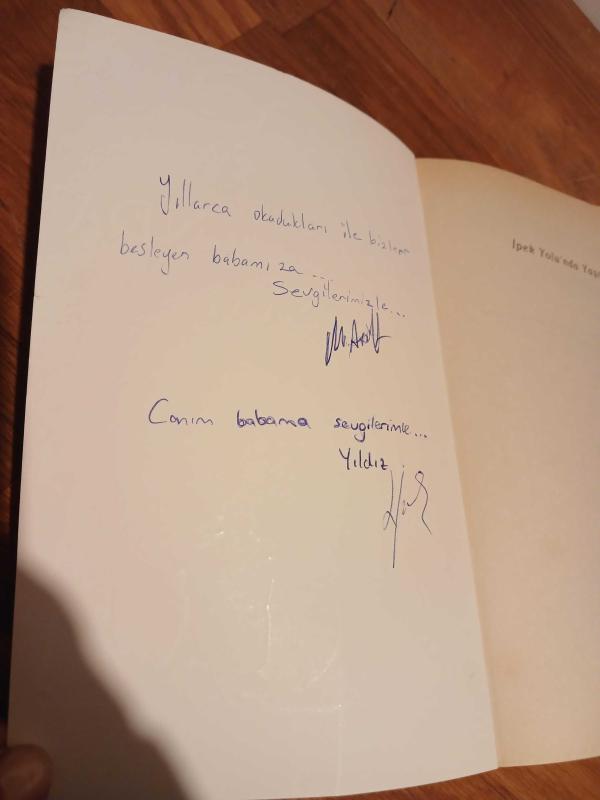 Yıllarca okudukları ile bizleri
besleyen babamıza...
Sevgilerimizle...
Canım babama sevgilerimle...
Yıldız
İpek Yolu'nda